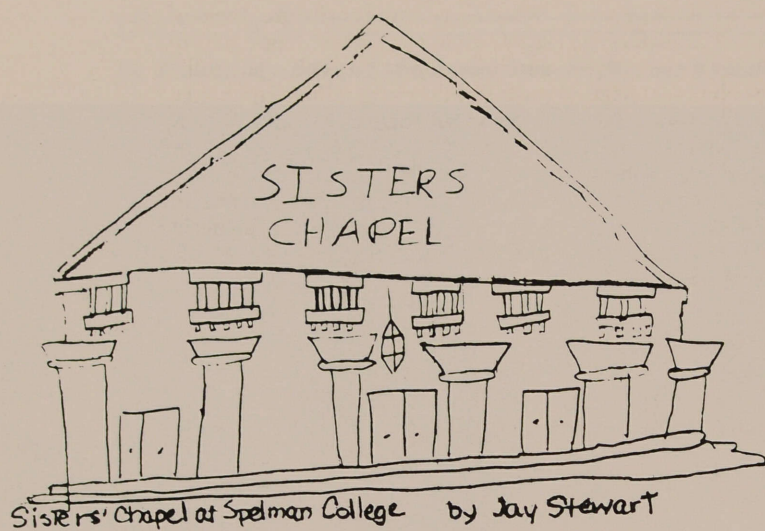 SISTERS
CHAPEL
Sisters' Chapel at Spelman College by Jay Stewart